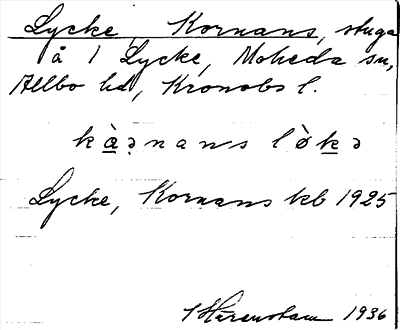 Lycke, Kornans, stuga
å 1 Lycke, Moheda sn,
Allbo hd, Kronobs l.
kà̲ꝛnans lòk̲ə
Lycke, Kornans kb 1925
Härenstam 1936